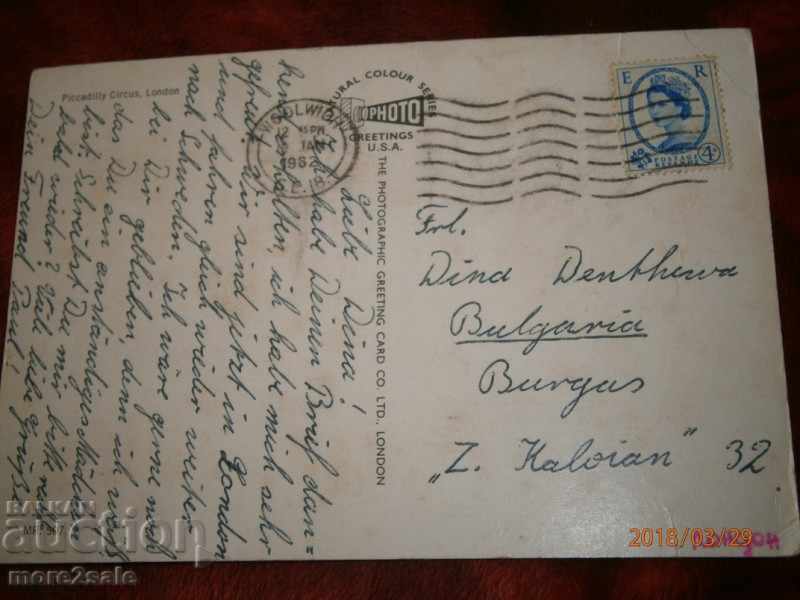 Piccadilly Circus, London
Liebe Dina!
Ich habe Deinen Brief dan=
kend erhalten, ich habe mich sehr
gefreut. Wir sind jetzt in London
und fahren gleich wieder weiter
nach Schweden. Ich wäre gerne noch
bei Dir geblieben, denn ich weiß
das Du ein anständiges Mädchen
bist. Schreibst Du mir bitte recht
bald wieder? Viele liebe Grüße
Dein Freund Paul!
NATURAL COLOUR SERIES
PHOTO
GREETINGS
U.S.A.
THE PHOTOGRAPHIC GREETING CARD CO. LTD., LONDON
WOOLWICH
PM
JAN
196
E R
POSTAGE
REVENUE
4D
Frl.
Dina Denthewa
Bulgaria
Burgas
„Z. Kaloian" 32
2018/03/29
Лондон
BALKAN
auction
more2sale